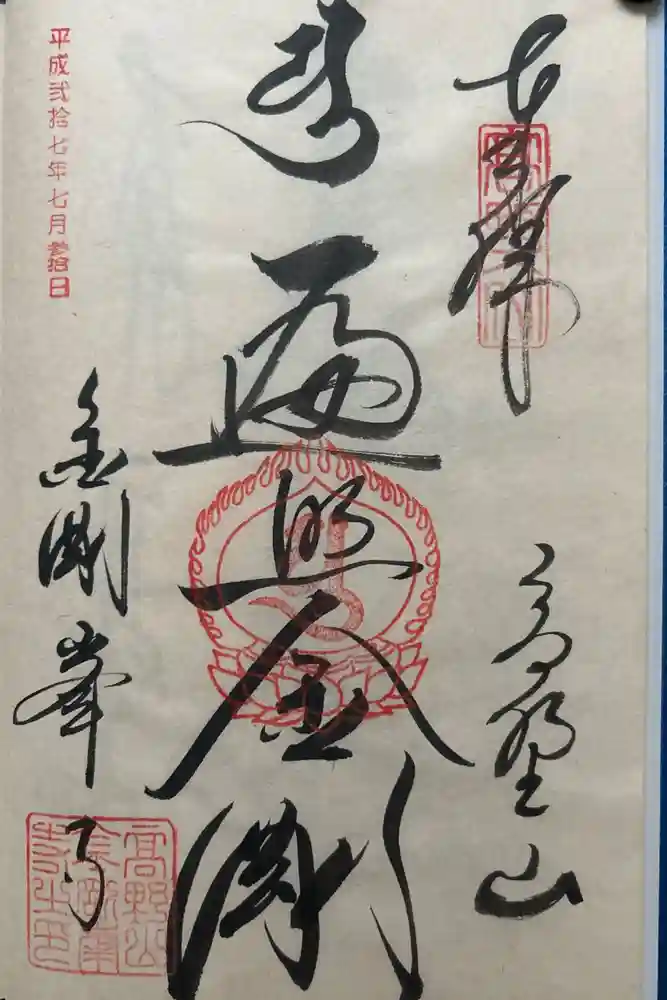 奉拝
高野山
遍照金剛
平成弐拾七年七月参拾日
金剛峯寺
高野山
金剛峯
寺之印